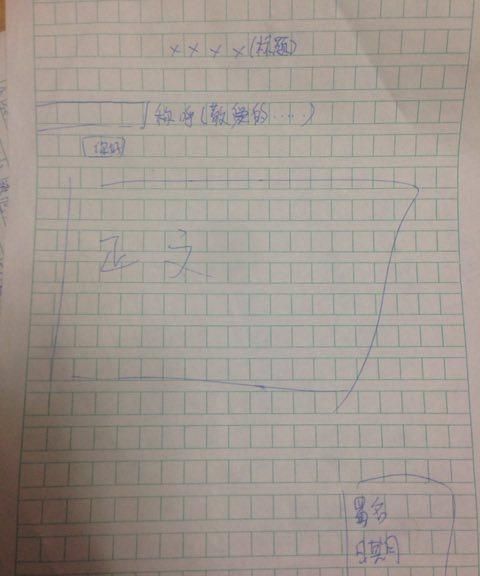 ××××(标题)
称呼(敬爱的……)
你好
正文
署名
日期